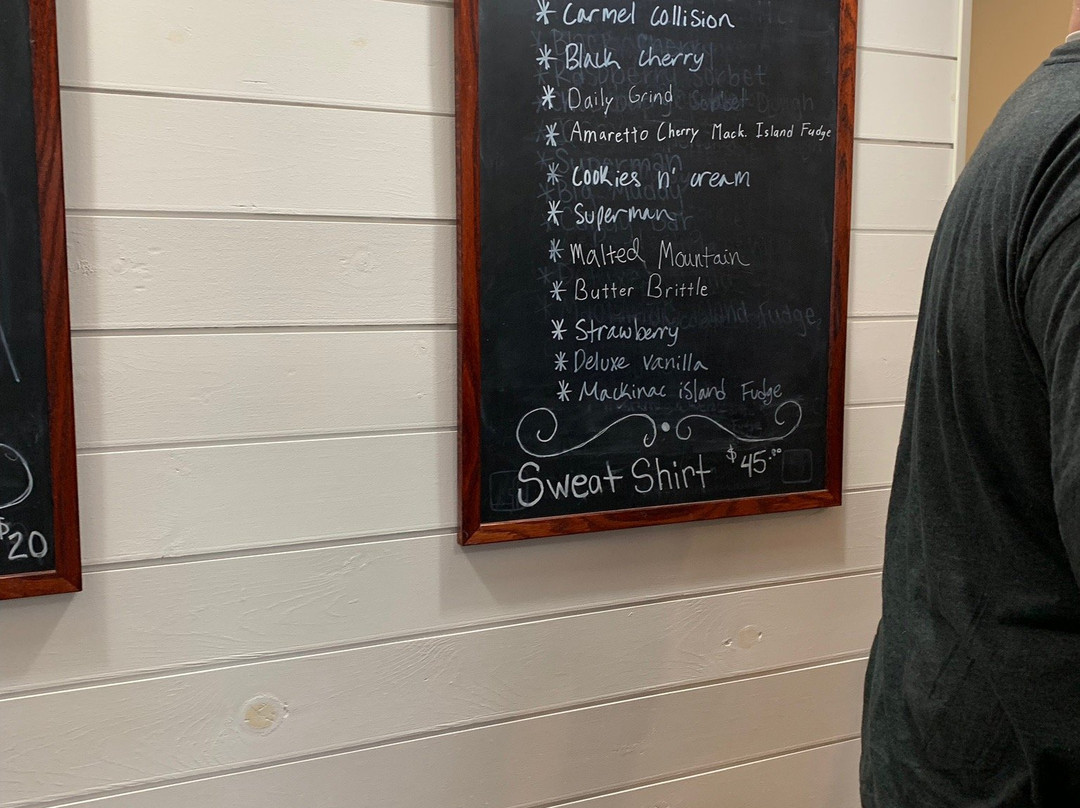 * Carmel Collision
* Black Cherry
* Daily Grind
* Amaretto Cherry Mack. Island Fudge
* Cookies n' cream
* Superman
* Malted Mountain
* Butter Brittle
* Strawberry
* Deluxe Vanilla
* Mackinac island Fudge
Sweat Shirt $45.00
$20